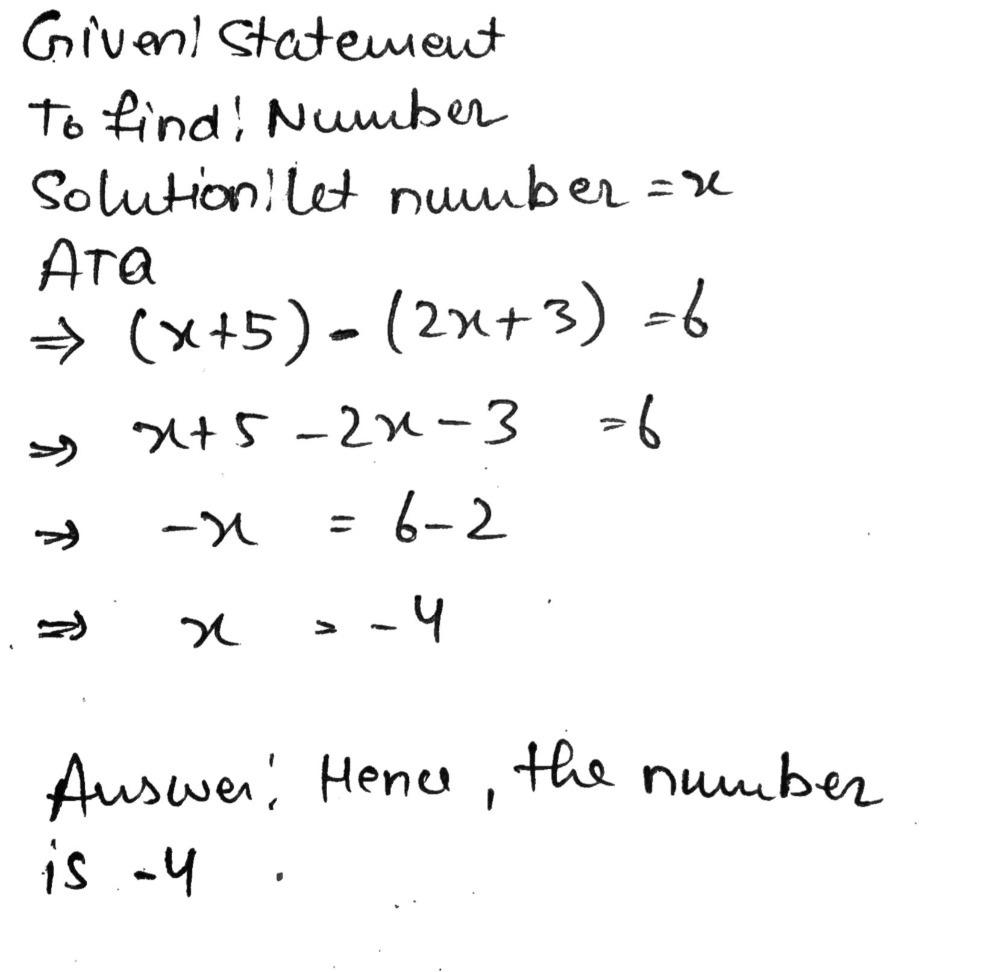 Given: Statement
To find: Number
Solution: let number = x
ATQ
⇒ (x+5) - (2x+3) = 6
⇒ x+5 -2x-3 = 6
⇒ -x = 6-2
⇒ x = -4
Answer: Hence, the number
is -4.